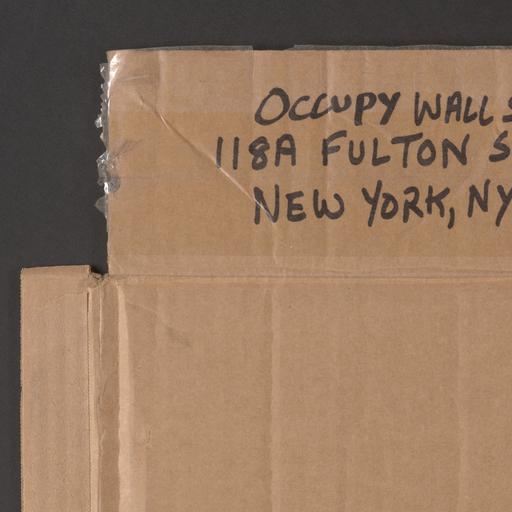 OCCUPY WALL S
118A FULTON S
NEW YORK, NY